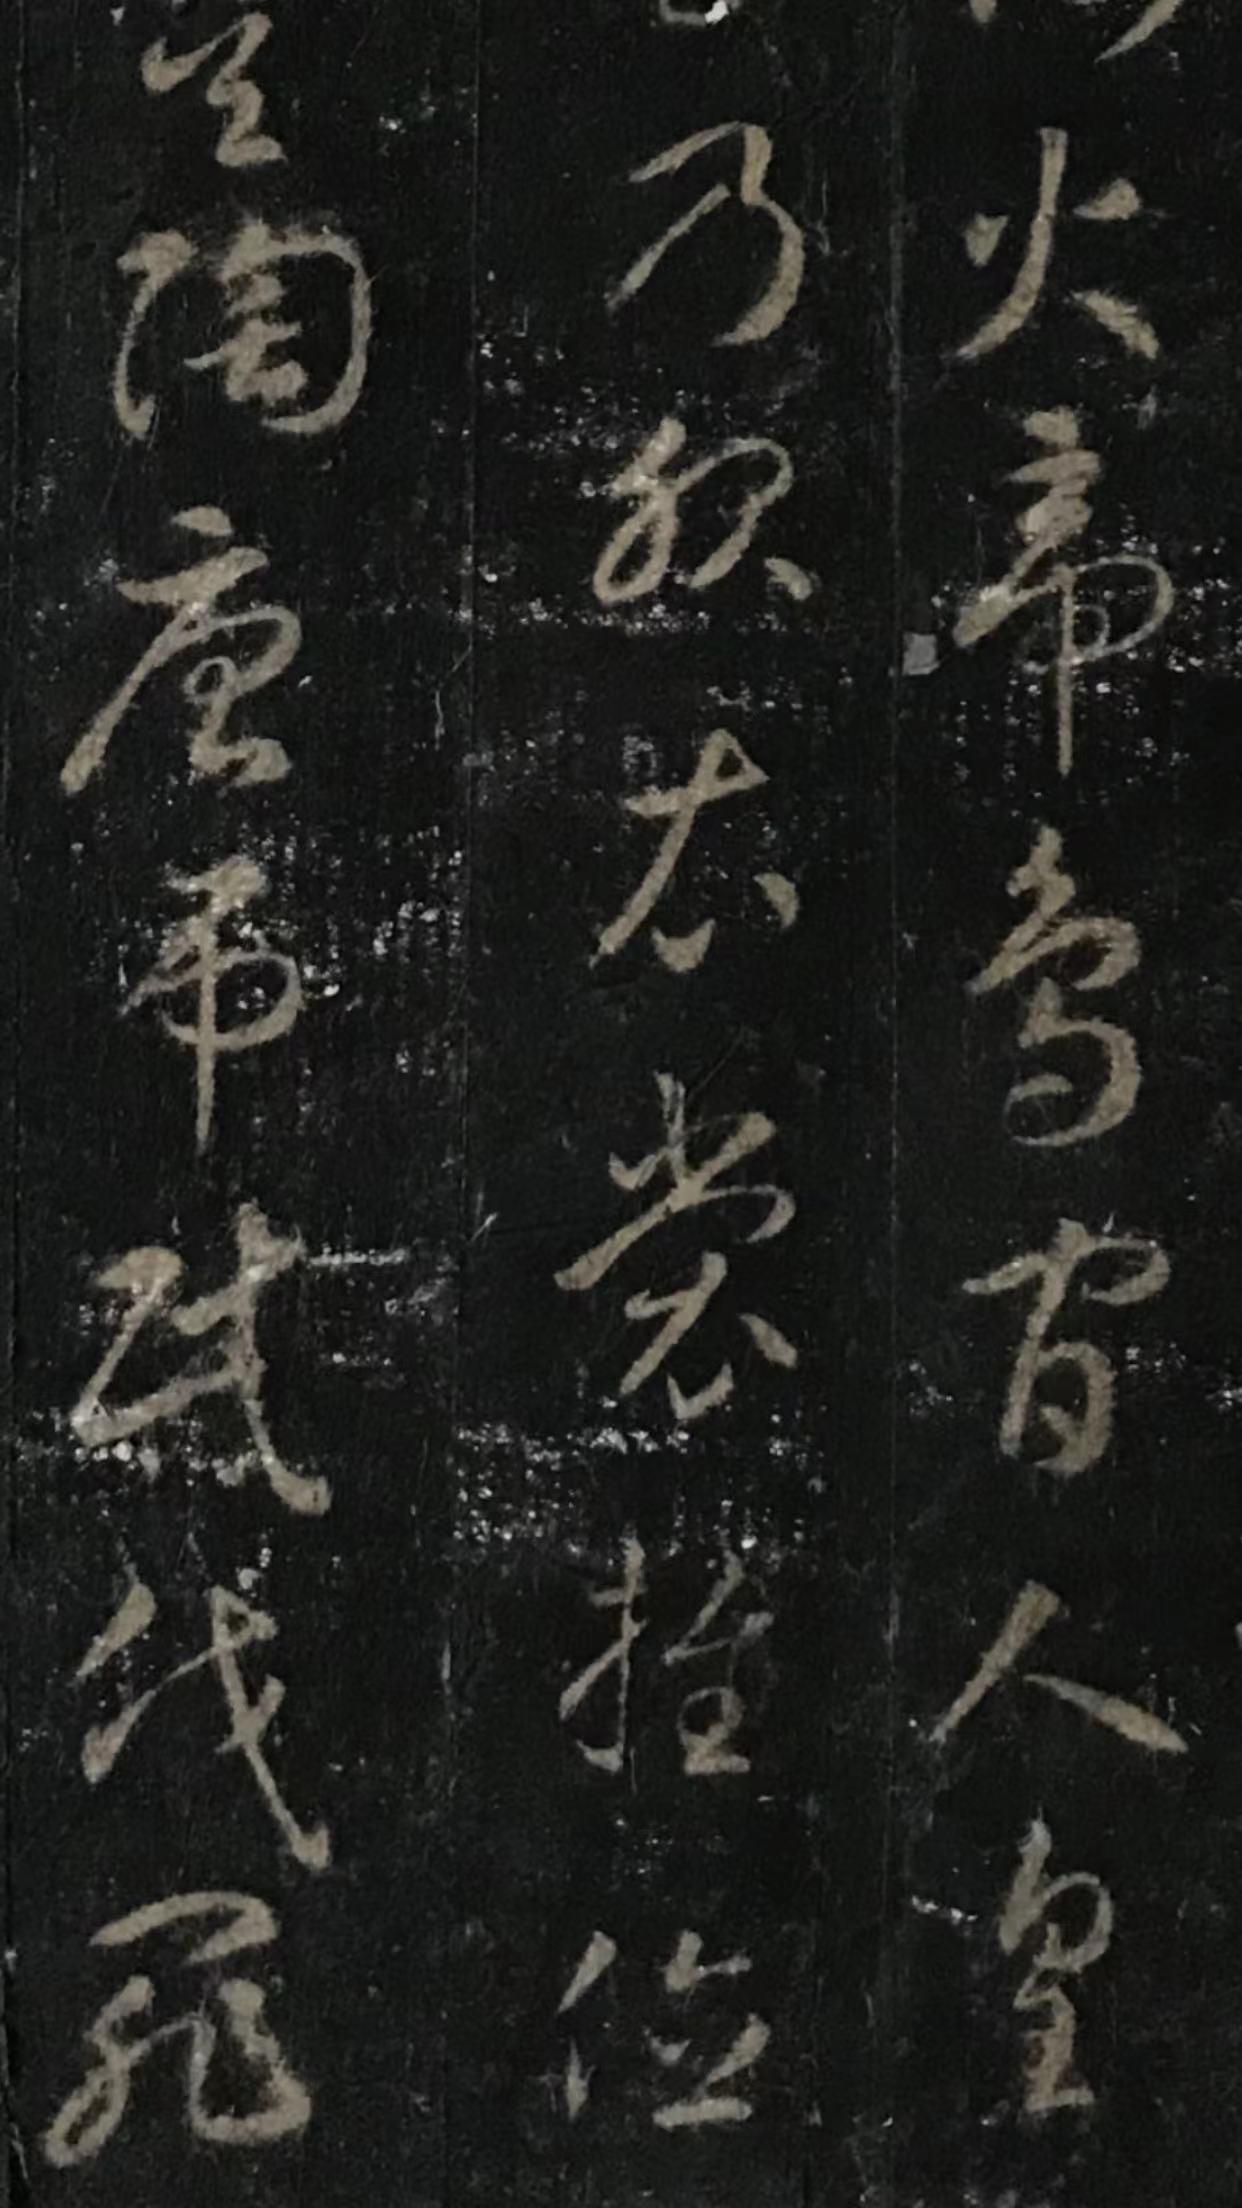 火帝鳥官人皇
乃服衣裳推位
虞陶唐弔民伐罪